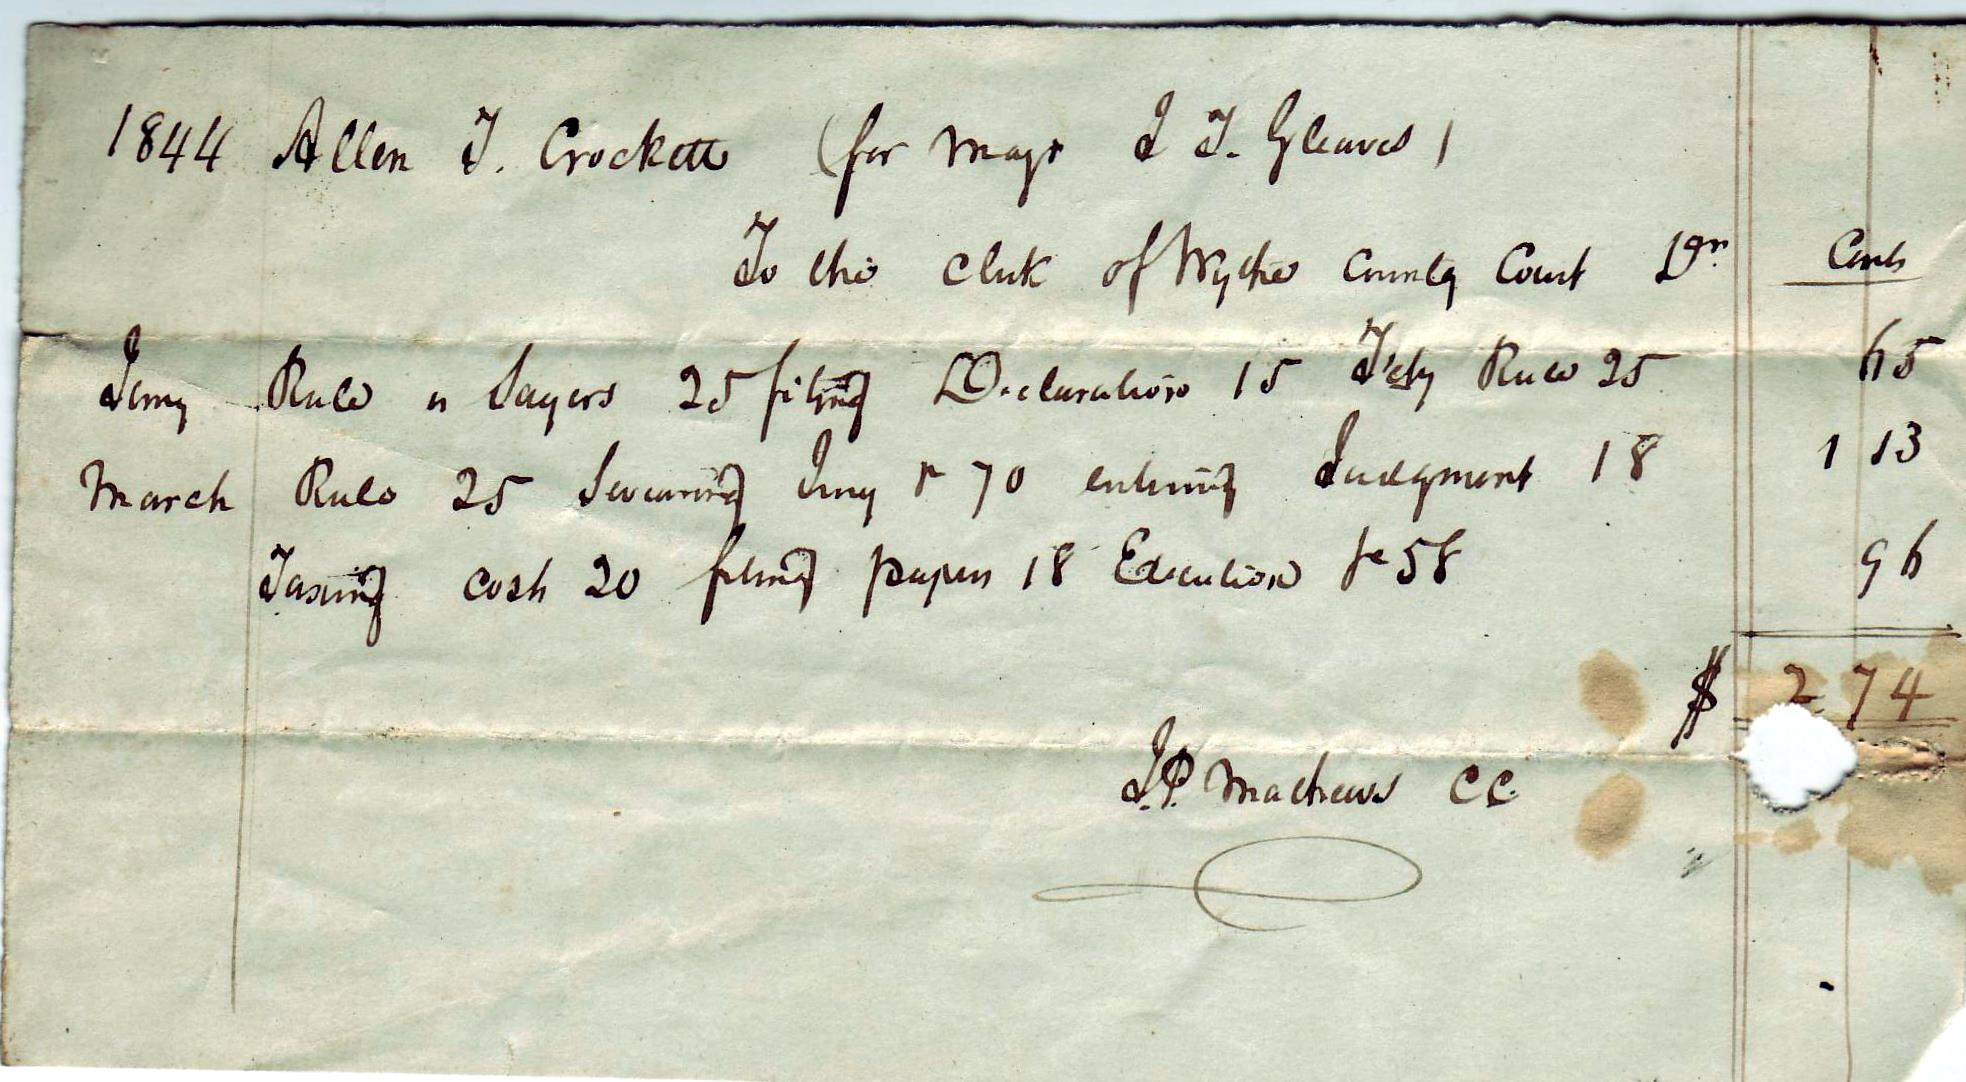 1844 Allen T. Crockett (for Majr J T. Gleaves)
To the Clerk of Wythe County Court Dr. Cents
Jany Rule v Sayers 25 filing Declaration 15 Feby Rule 25 65
March Rule 25 Swearing Jury &c 70 entering Judgment 18 1 13
Taxing costs 20 filing papers 18 Execution &c 58 96
$ 2 74
J.P. Mathews CC